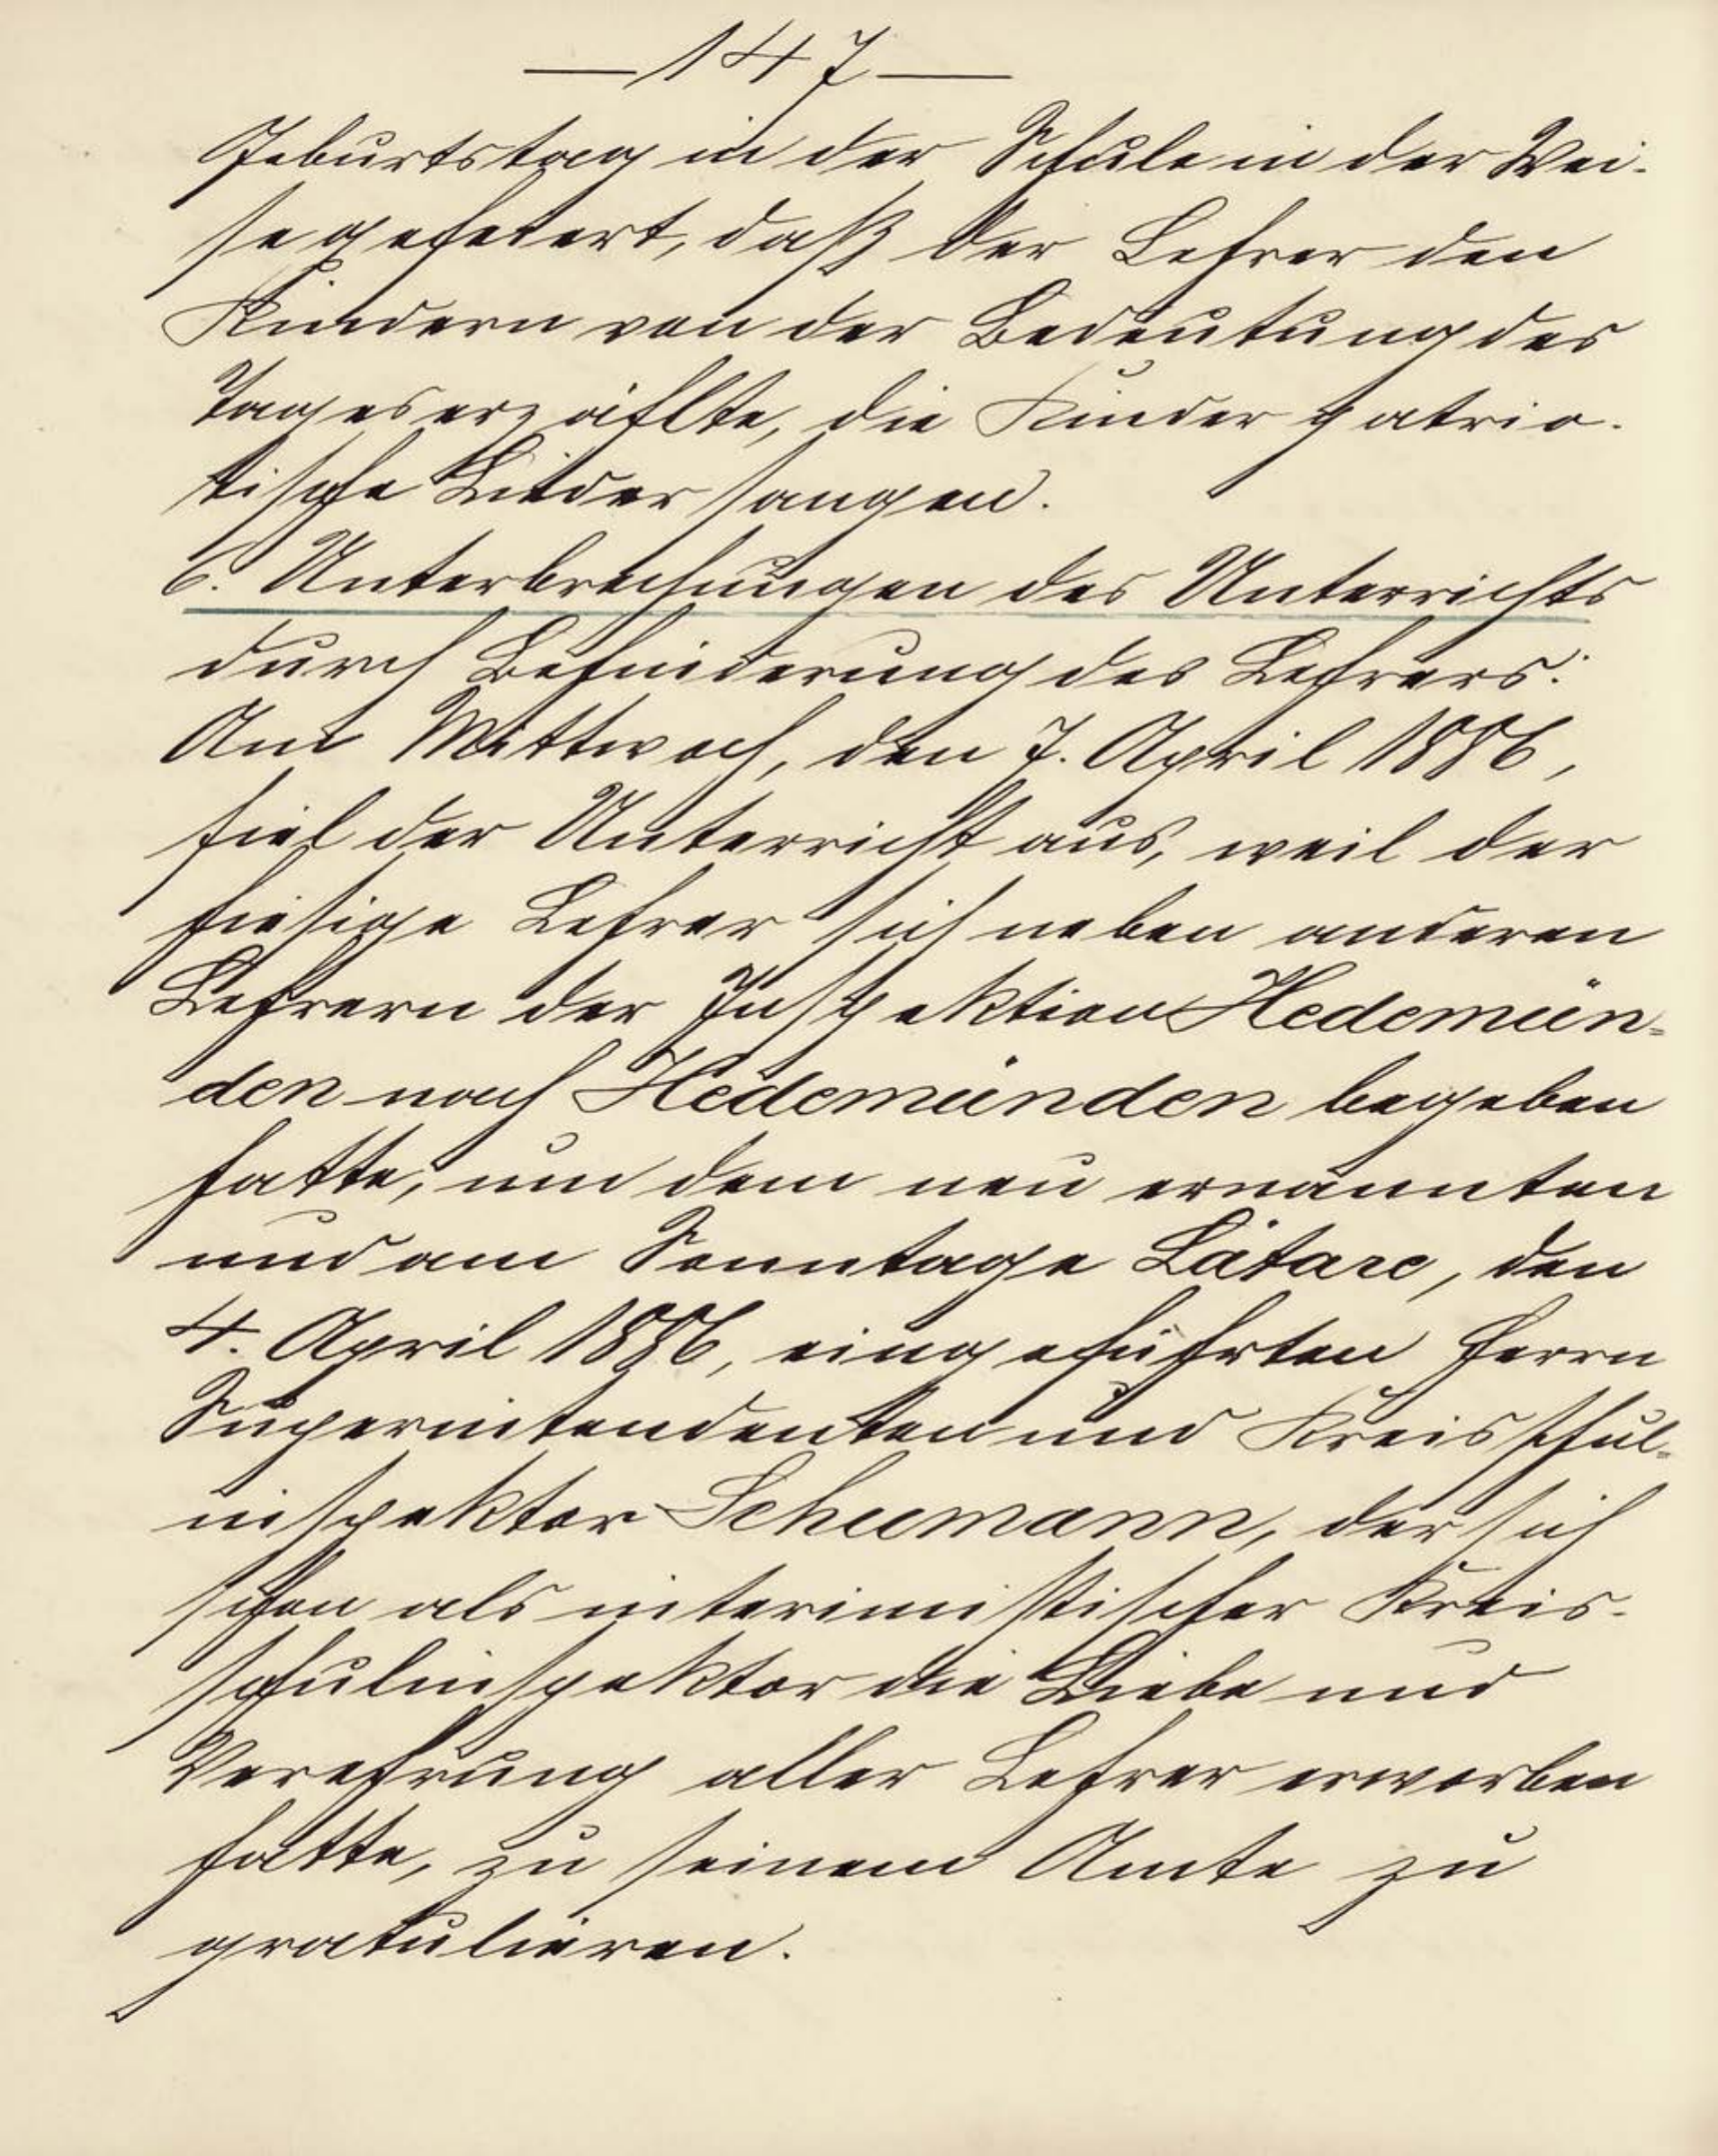 — 147 —
Geburtstag in der Schule in der Wei-
se gefeiert, daß der Lehrer den
Kindern von der Bedeutung des
Tages erzählte, die Kinder patrio-
tische Lieder sangen.
6. Unterbrechungen des Unterrichts
durch Behinderung des Lehrers:
Am Mittwoch, den 7. April 1886,
fiel der Unterricht aus, weil der
hiesige Lehrer sich neben anderen
Lehrern der Inspektion Hedemün-
den nach Hedemünden begeben
hatte, um dem neu ernannten
und am Sonntage Lätare, den
4. April 1886, eingeführten Herrn
Superintendenten und Kreisschul-
inspektor Scheemann, der sich
schon als interimistischer Kreis-
schulinspektor die Liebe und
Verehrung aller Lehrer erworben
hatte, zu seinem Amte zu
gratulieren.